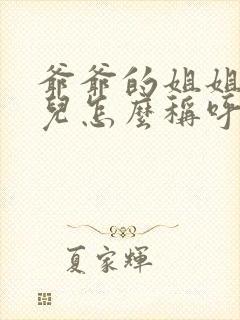 爺爺的姐姐
兒怎麼稱呼
夏家輝